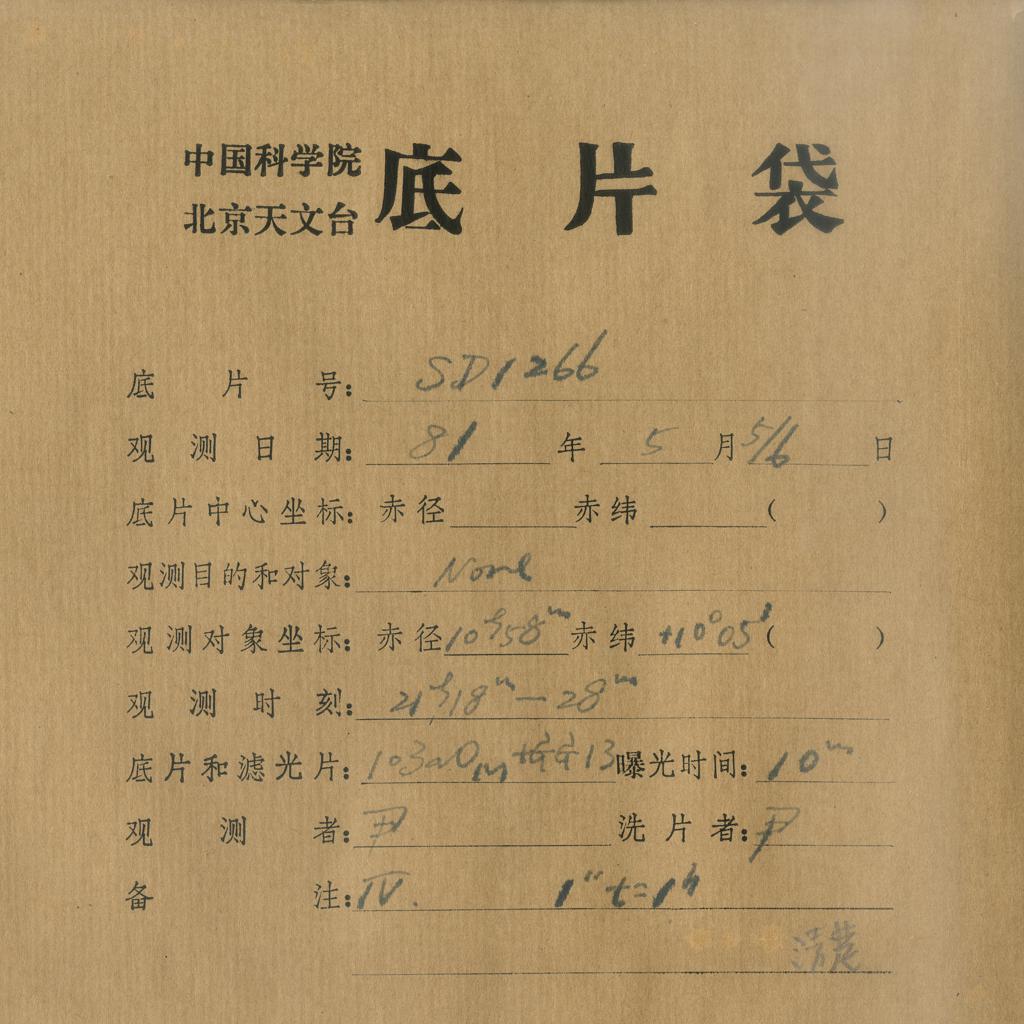 中国科学院
北京天文台
底片袋
底片号: SD1266
观测日期: 81年 5月 5/6日
底片中心坐标: 赤径 赤纬 ( )
观测目的和对象:
观测对象坐标: 赤径 10h58m 赤纬 +10°05′ ( )
观测时刻: 21h18m — 28m
底片和滤光片: 103aO 曝光时间: 10m
观测者: 尹 洗片者: 尹
备注: IV. 1″ t=1h